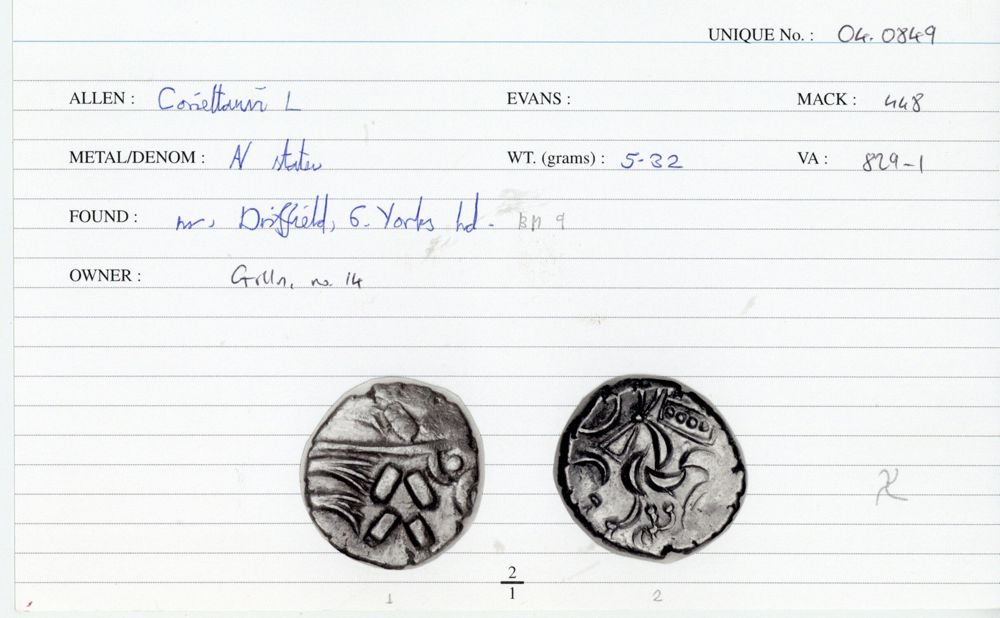 UNIQUE No. : 04.0849
ALLEN : Corieltauvi L EVANS : MACK : 448
METAL/DENOM : N stater WT. (grams) : 5-32 VA : 829-1
FOUND : nr. Driffield, E. Yorks hd.
OWNER : no. 14
2
1
1 2